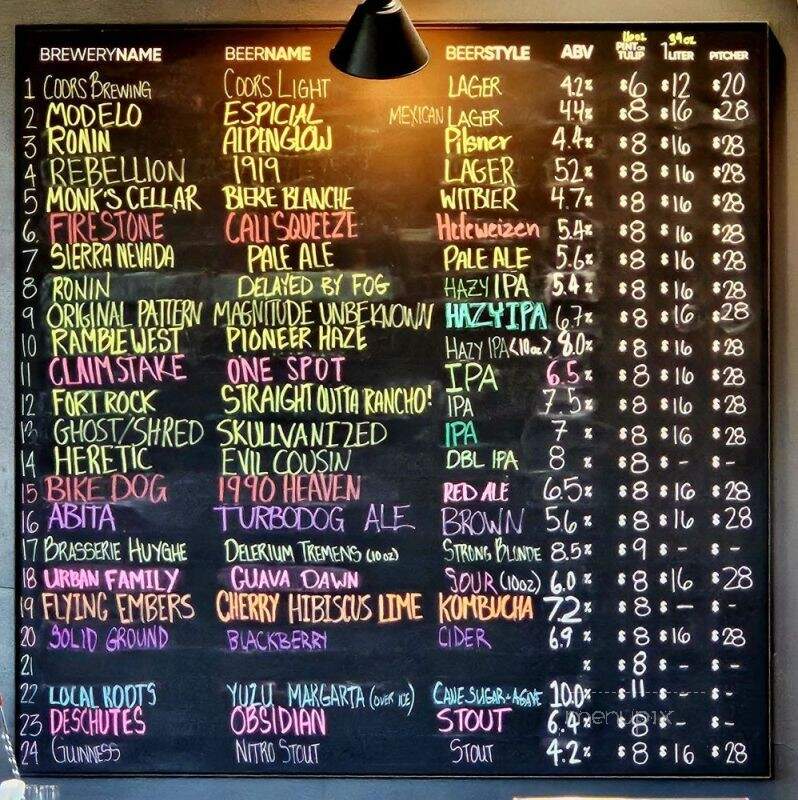 BREWERYNAME BEERNAME BEERSTYLE ABV 16oz PINT OR TULIP 34oz 1 LITER PITCHER
1 COORS BREWING COORS LIGHT LAGER 4.2% $6 $12 $20
2 MODELO ESPICIAL MEXICAN LAGER 4.4% $8 $16 $28
3 RONIN ALPENGLOW Pilsner 4.4% $8 $16 $28
4 REBELLION 1919 LAGER 52% $8 $16 $28
5 MONK'S CELLAR BIERE BLANCHE WITBIER 4.7% $8 $16 $28
6 FIRESTONE CALI SQUEEZE Hefeweizen 5.4% $8 $16 $28
7 SIERRA NEVADA PALE ALE PALE ALE 5.6% $8 $16 $28
8 RONIN DELAYED BY FOG HAZY IPA 5.4% $8 $16 $28
9 ORIGINAL PATTERN MAGNITUDE UNBEKNOWN HAZY IPA 6.7% $8 $16 $28
10 RAMBLE WEST PIONEER HAZE HAZY IPA (10oz) 8.0% $8 $16 $28
11 CLAIMSTAKE ONE SPOT IPA 6.5% $8 $16 $28
12 FORT ROCK STRAIGHT OUTTA RANCHO! IPA 7.5% $8 $16 $28
13 GHOST/SHRED SKULLVANIZED IPA 7% $8 $16 $28
14 HERETIC EVIL COUSIN DBL IPA 8% $8 $- $-
15 BIKE DOG 1990 HEAVEN RED ALE 6.5% $8 $16 $28
16 ABITA TURBODOG ALE BROWN 5.6% $8 $16 $28
17 BRASSERIE HUYGHE DELERIUM TREMENS (10oz) STRONG BLONDE 8.5% $9 $- $-
18 URBAN FAMILY GUAVA DAWN SOUR (10OZ) 6.0% $8 $16 $28
19 FLYING EMBERS CHERRY HIBISCUS LIME KOMBUCHA 7.2% $8 $- $-
20 SOLID GROUND BLACKBERRY CIDER 6.9% $8 $16 $28
21 % $8 $- $-
22 LOCAL ROOTS YUZU MARGARTA (OVER ICE) CANE SUGAR + AGAVE 10.0% $11 $- $-
23 DESCHUTES OBSIDIAN STOUT 6.4% $8 $- $-
24 GUINNESS NITRO STOUT STOUT 4.2% $8 $16 $28
menupix